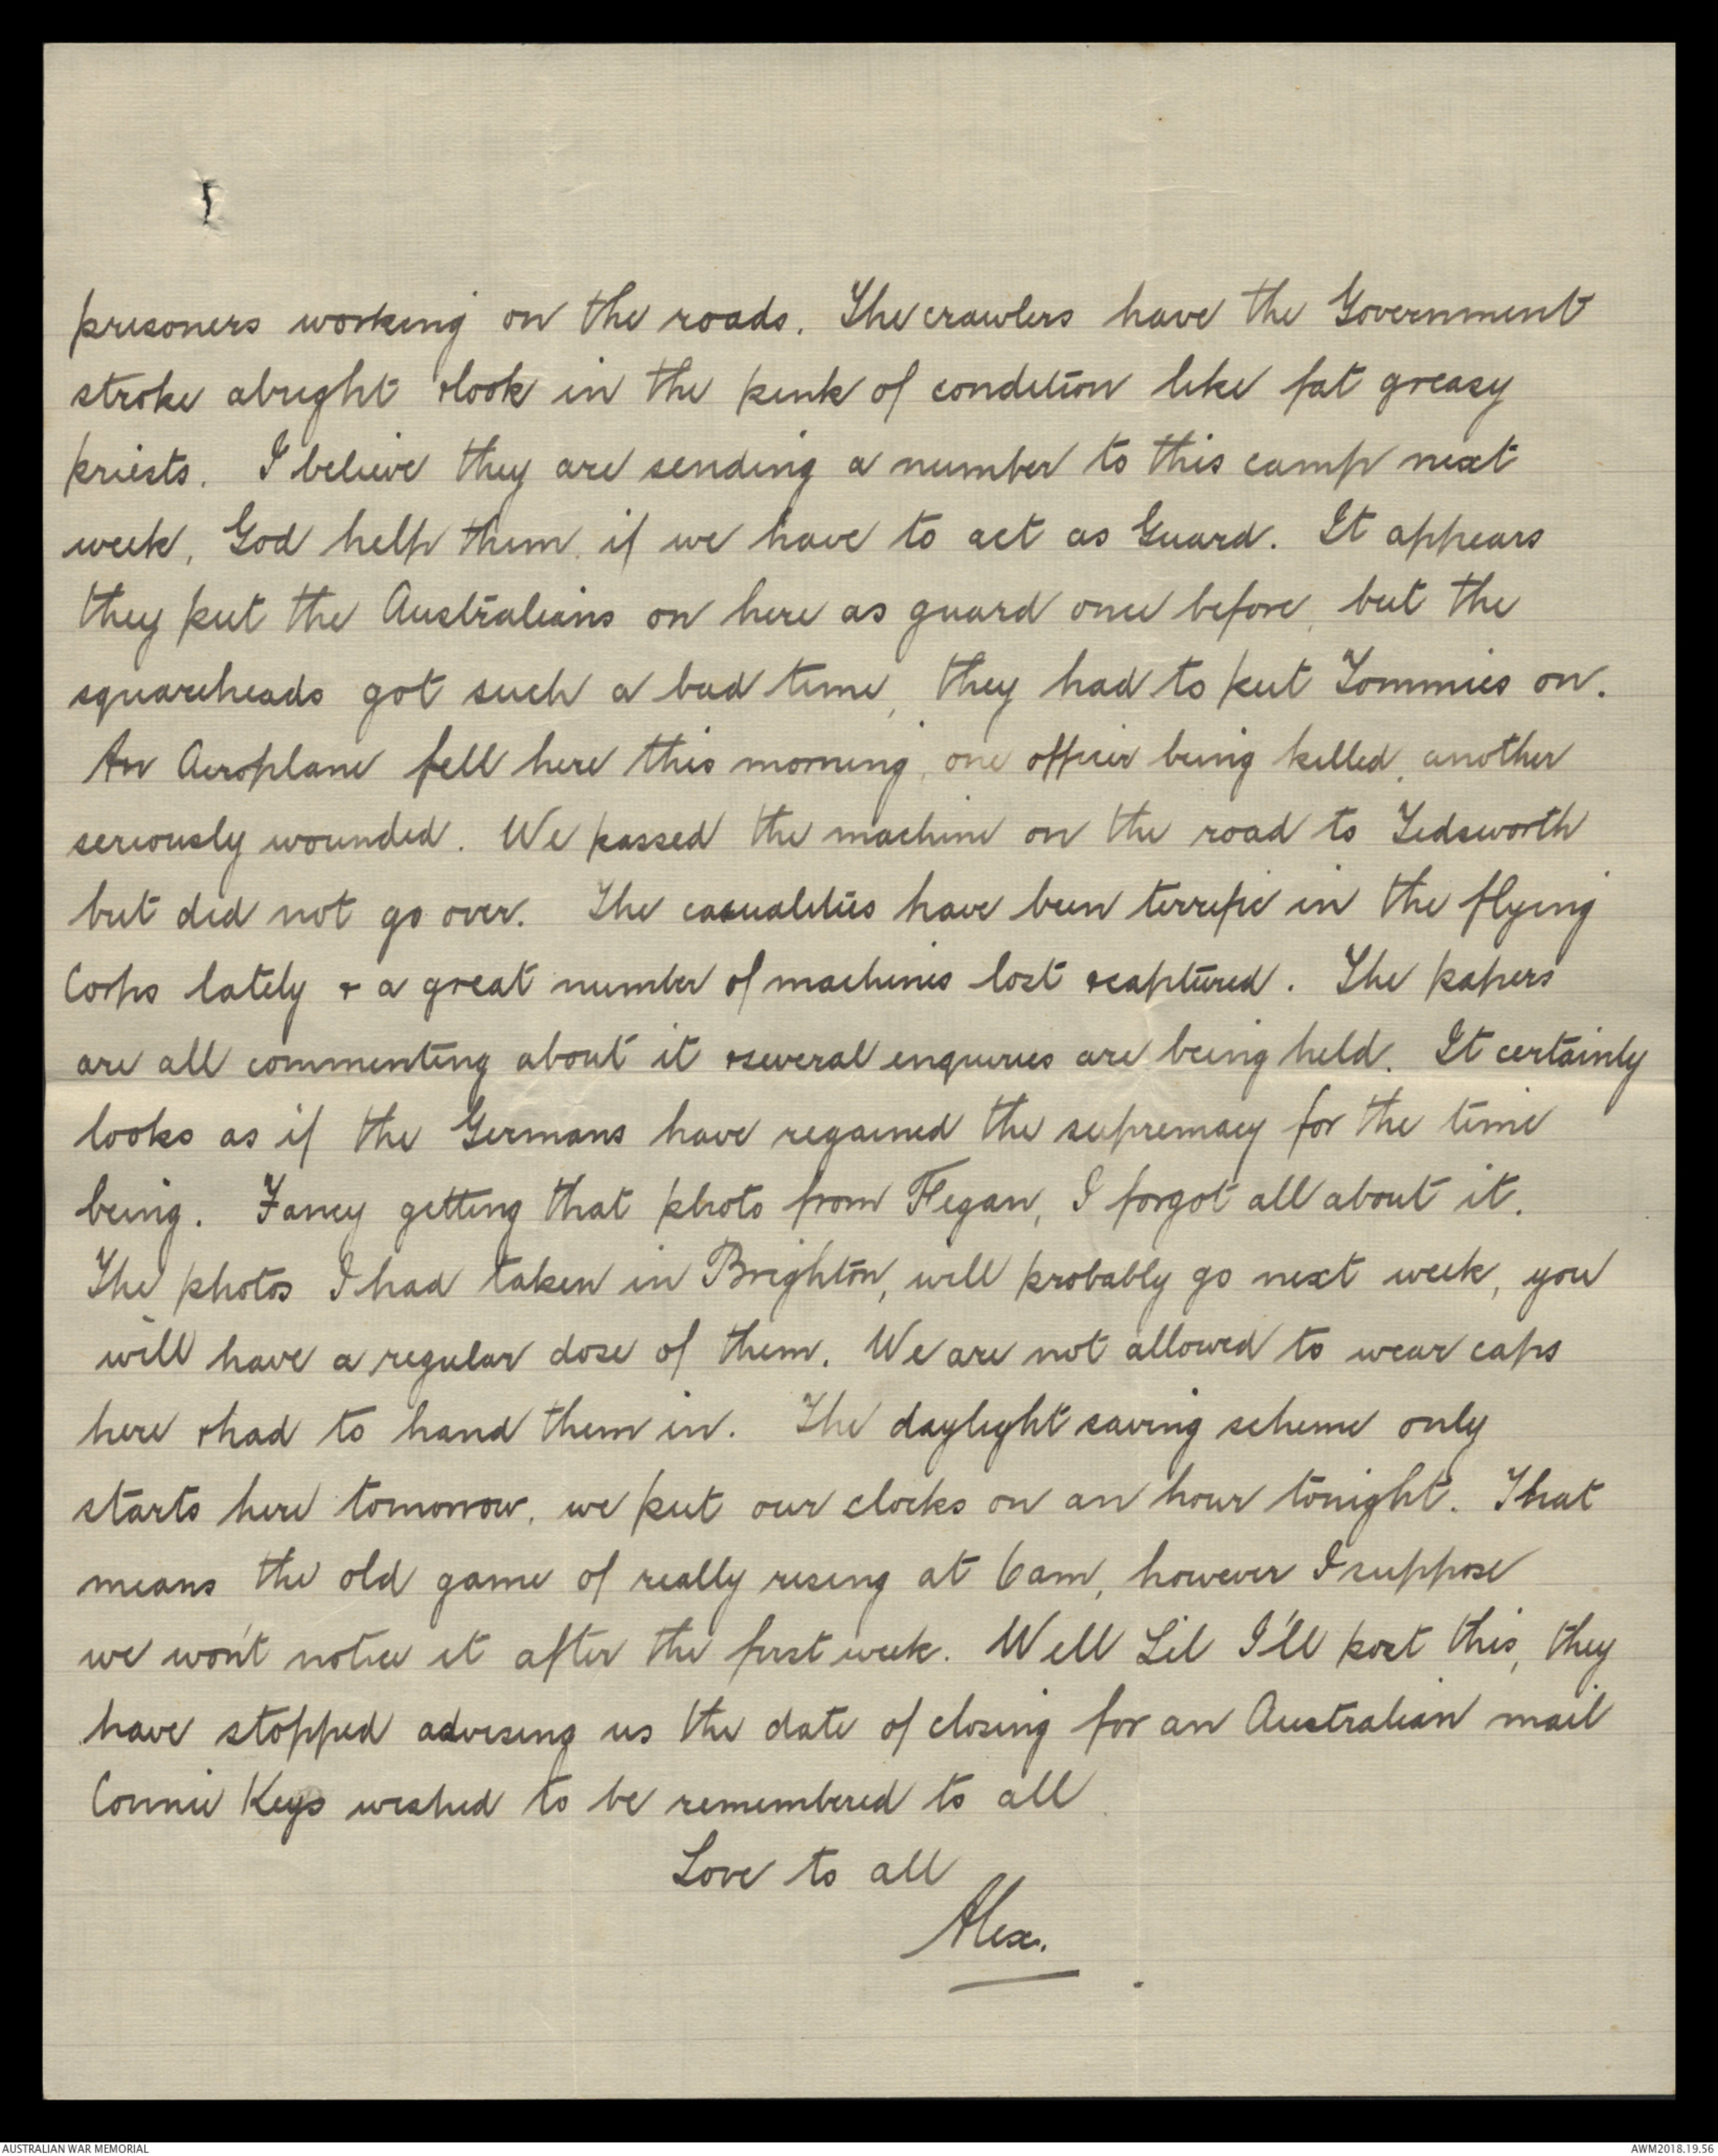 prisoners working on the roads. The crawlers have the Government
stroke alright & look in the pink of condition like fat greasy
priests. I believe they are sending a number to this camp next
week, God help them, if we have to act as Guard. It appears
they put the Australians on here as guard once before, but the
squareheads got such a bad time, they had to put Tommies on.
An Aeroplane fell here this morning, one officer being killed, another
seriously wounded. We passed the machine on the road to Tedsworth
but did not go over. The casualities have been terrific in the flying
Corps lately & a great number of machines lost & captured. The papers
are all commenting about it & several enquiries are being held. It certainly
looks as if the Germans have regained the supremacy for the time
being. Fancy getting that photo from Fegan, I forgot all about it.
The photos I had taken in Brighton, will probably go next week, you
will have a regular dose of them. We are not allowed to wear caps
here & had to hand them in. The daylight saving scheme only
starts here tomorrow, we put our clocks on an hour tonight. That
means the old game of really rising at 6am, however I suppose
we won't notice it after the first week. Well Lil I'll post this, they
have stopped advising us the date of closing for an Australian mail
Connie Keys wished to be remembered to all
Love to all
Alex.
AUSTRALIAN WAR MEMORIAL
AWM2018.19.56